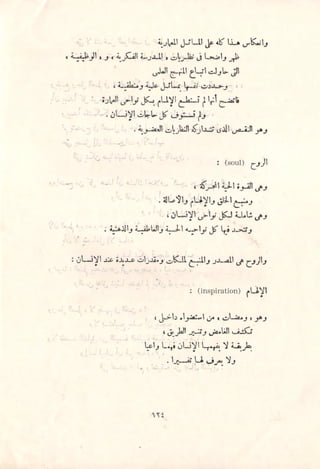 وانعكس هذا كله على المسائل العلمية
ظهر واضحا في نظريات ، والمدرسة الفكرية ، و ، الوثيقة ،
التي حاولت اتباع المنهج العلمي
وتوحدت بنفس مسائل علم وضعية ،
فسحقت أيما انسجام الإلهام بشكل واضح العبارة
لم يوصف كل حاجات الإنسان .
وهو النقص الذي تداركته النظريات العصرية .
الروح (soul) :
وهي القوة الحية المحركة ،
ومنبع الخلق والإلهام والأصالة
وهي شاملة لكل نواحي الإنسان ،
وتوجد بها كل نواحيه الحسية والعاطفية والذهنية .
والروح هي المصدر والمنبع لكل قدرات عديدة عند الإنسان :
الإلهام (inspiration) :
وهو ، ومضات ، من استبصار داخلي ،
تكشف الغامض وتنير الطريق ،
بطريقة لا يفهمها الإنسان فهما واعيا
ولا يعرف لها تفسيرا .
١٢٤